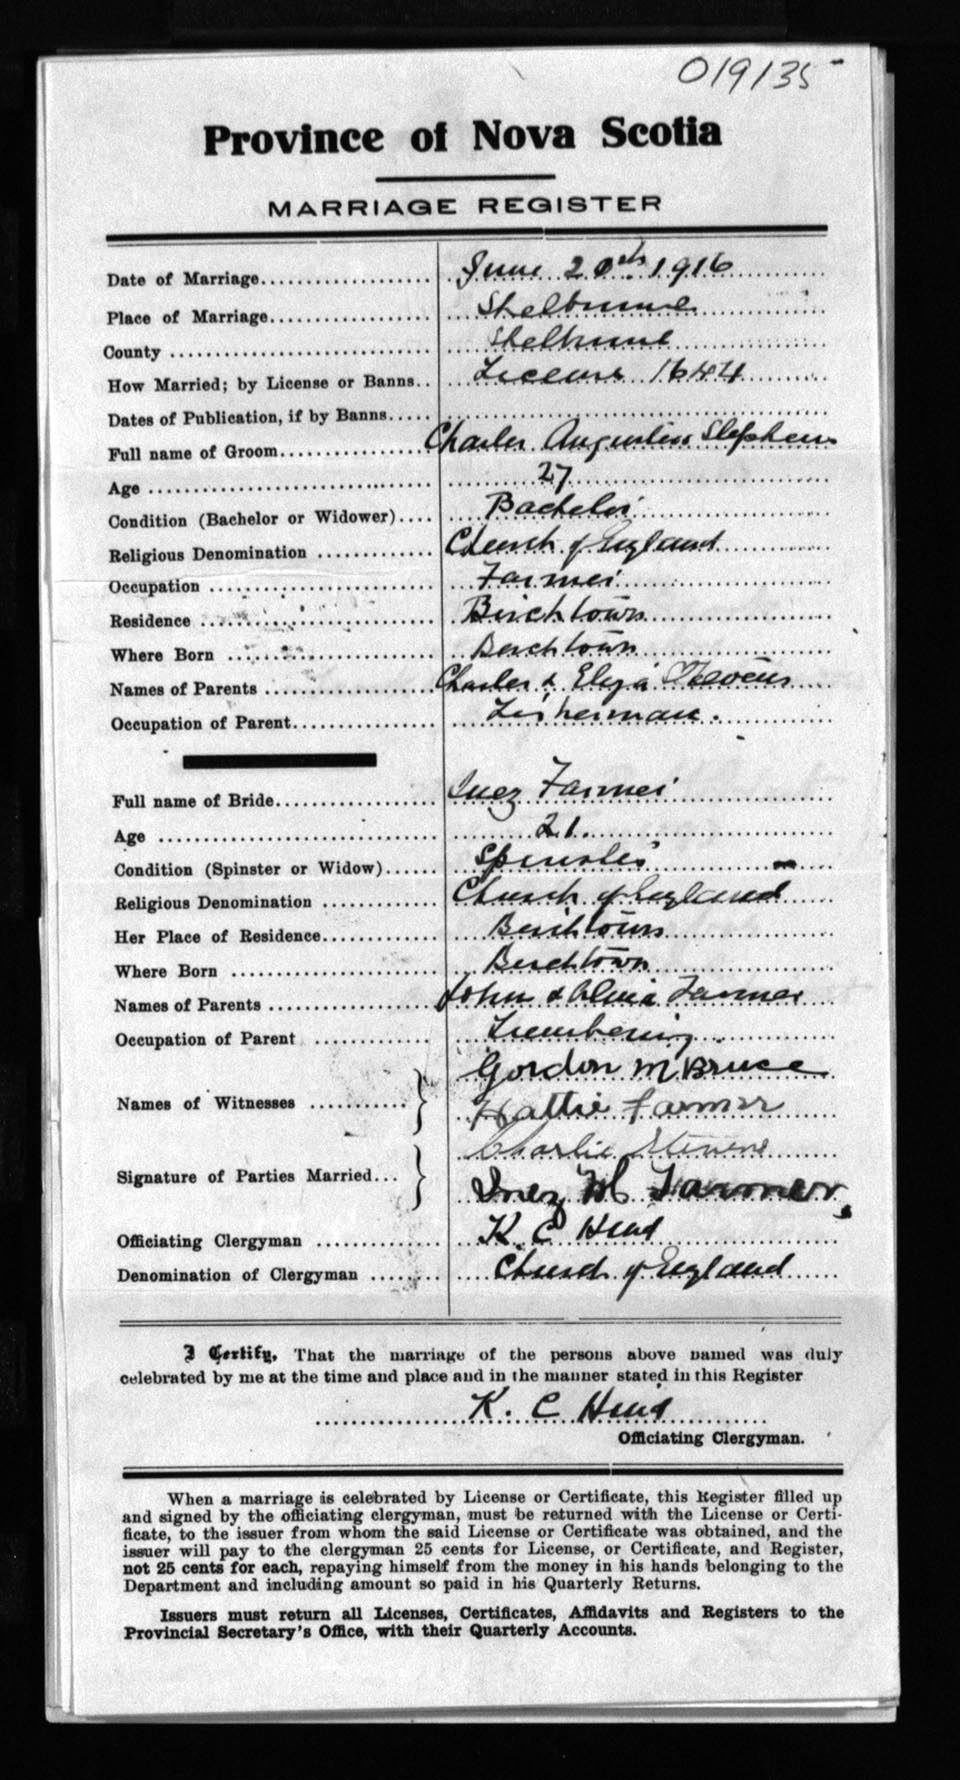 019135
Province of Nova Scotia
MARRIAGE REGISTER
Date of Marriage.................... June 20th 1916
Place of Marriage................... Shelburne
County .............................. Shelburne
How Married; by License or Banns.. License 1644
Dates of Publication, if by Banns.....
Full name of Groom.................. Charles Augustin Stephens
Age .............................. 27
Condition (Bachelor or Widower).... Bachelor
Religious Denomination ............. Church of England
Occupation ......................... Farmer
Residence .......................... Birchtown
Where Born ......................... Birchtown
Names of Parents ................... Charles & Eliza Stevens
Occupation of Parent................ Fisherman.
Full name of Bride.................. Inez Farmer
Age .............................. 21.
Condition (Spinster or Widow)...... Spinster
Religious Denomination ............. Church of England
Her Place of Residence.............. Birchtown
Where Born ......................... Birchtown
Names of Parents ................... John & Farmer
Occupation of Parent ............... Lumbering.
Gordon M Bruce
Names of Witnesses ...........
Hattie Farmer
Charlie Stevens
Signature of Parties Married...
Inez M Farmer.
Officiating Clergyman .............. K. C Hind
Denomination of Clergyman ......... Church of England
I Certify, That the marriage of the persons above named was duly
celebrated by me at the time and place and in the manner stated in this Register
K. C Hind
Officiating Clergyman.
When a marriage is celebrated by License or Certificate, this Register filled up
and signed by the officiating clergyman, must be returned with the License or Certi-
ficate, to the issuer from whom the said License or Certificate was obtained, and the
issuer will pay to the clergyman 25 cents for License, or Certificate, and Register,
not 25 cents for each, repaying himself from the money in his hands belonging to the
Department and including amount so paid in his Quarterly Returns.
Issuers must return all Licenses, Certificates, Affidavits and Registers to the
Provincial Secretary's Office, with their Quarterly Accounts.